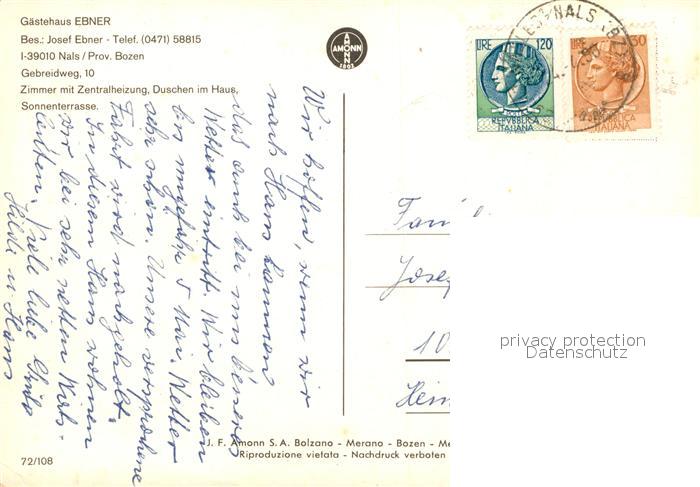 Gästehaus EBNER
Bes.: Josef Ebner - Telef. (0471) 58815
I-39010 Nals / Prov. Bozen
Gebreidweg, 10
Zimmer mit Zentralheizung, Duschen im Haus,
Sonnenterrasse.
AMONN
AMONN
1802
LIRE 120
REPVBBLICA
ITALIANA
LIRE
REPVBBLICA
ITALIANA
NALS
Wir hoffen, wenn wir
nach Haus kommen
das auch bei uns besseres
Wetter eintrifft. Wir bleiben
bis ungefähr 5 Mai. Wetter
sehr schön. Unsere versprochene
Fahrt wird nachgeholt.
In diesem Haus wohnen
wir bei sehr netten Wirts-
leuten. Viele liebe Grüße
Hilde u. Hans
Fam
Josef
10
Hein
privacy protection
Datenschutz
J. F. Amonn S.A. Bolzano - Merano - Bozen - Me
Riproduzione vietata - Nachdruck verboten
72/108